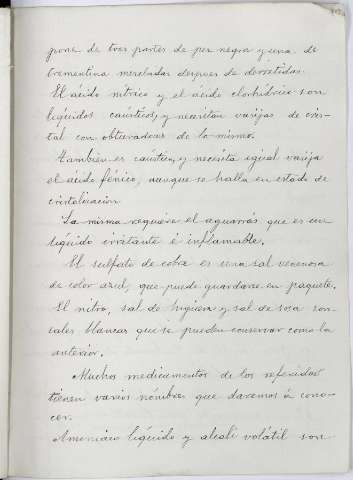 pone de tres partes de pez negra y una de
trementina mezcladas despues de derretidas.
El ácido nítrico y el ácido clorhídrico son
líquidos caústicos, y necesitan vasijas de cris-
tal con obturadores de lo mismo.
Tambien es caústico, y necesita igual vasija
el ácido fénico, aunque se halla en estado de
cristalizacion
La misma requiere el aguarrás que es un
líquido irritante é inflamable.
El sulfato de cobre es una sal venenosa
de color azul, que puede guardarse en paquete.
El nitro, sal de higuera y sal de sosa son
sales blancas que se pueden conservar como la
anterior.
Muchos medicamentos de los referidos
tienen varios nombres que daremos á cono-
cer.
Amoniaco líquido y alcalí volátil son